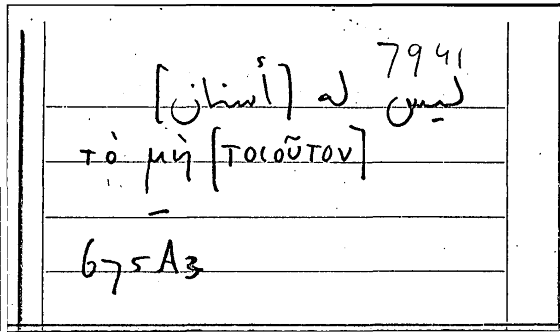 7941
ليس له [أسنان]
τὸ μὴ [τοιοῦτον]
–
675A3